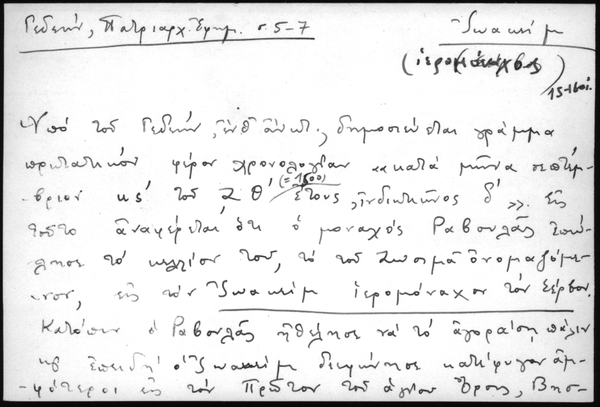 Γεδεών, Πατριαρχ. Ἐφημ. σ. 5-7
Ἰωακείμ
(ἱερομόναχος)
15-16 αἰ.
Ὑπό τοῦ Γεδεών, ἔνθ' ἀνωτ., δημοσιεύεται γράμμα
πρωτατικόν φέρον χρονολογίαν «κατά μῆνα σεπτέμ-
βριον κς´ τοῦ ζθ´ ἔτους, ἰνδικτιῶνος δ´». Εἰς
(= 1500)
τοῦτο ἀναφέρεται ὅτι ὁ μοναχός Ραβουλᾶς ἐπώ-
λησε τό κελλίον του, τό τοῦ Ζωσιμᾶ ὀνομαζόμε-
νον, εἰς τόν Ἰωακείμ ἱερομόναχον τόν Σέρβον.
Κατόπιν ὁ Ραβουλᾶς ἠθέλησε νά τό ἀγοράσῃ πάλιν
κ ἐπειδή ὁ Ἰωακείμ διεφώνησε κατέφυγον ἀμ-
φότεροι εἰς τόν Πρῶτον τοῦ ἁγίου Ὄρους, Βησ-